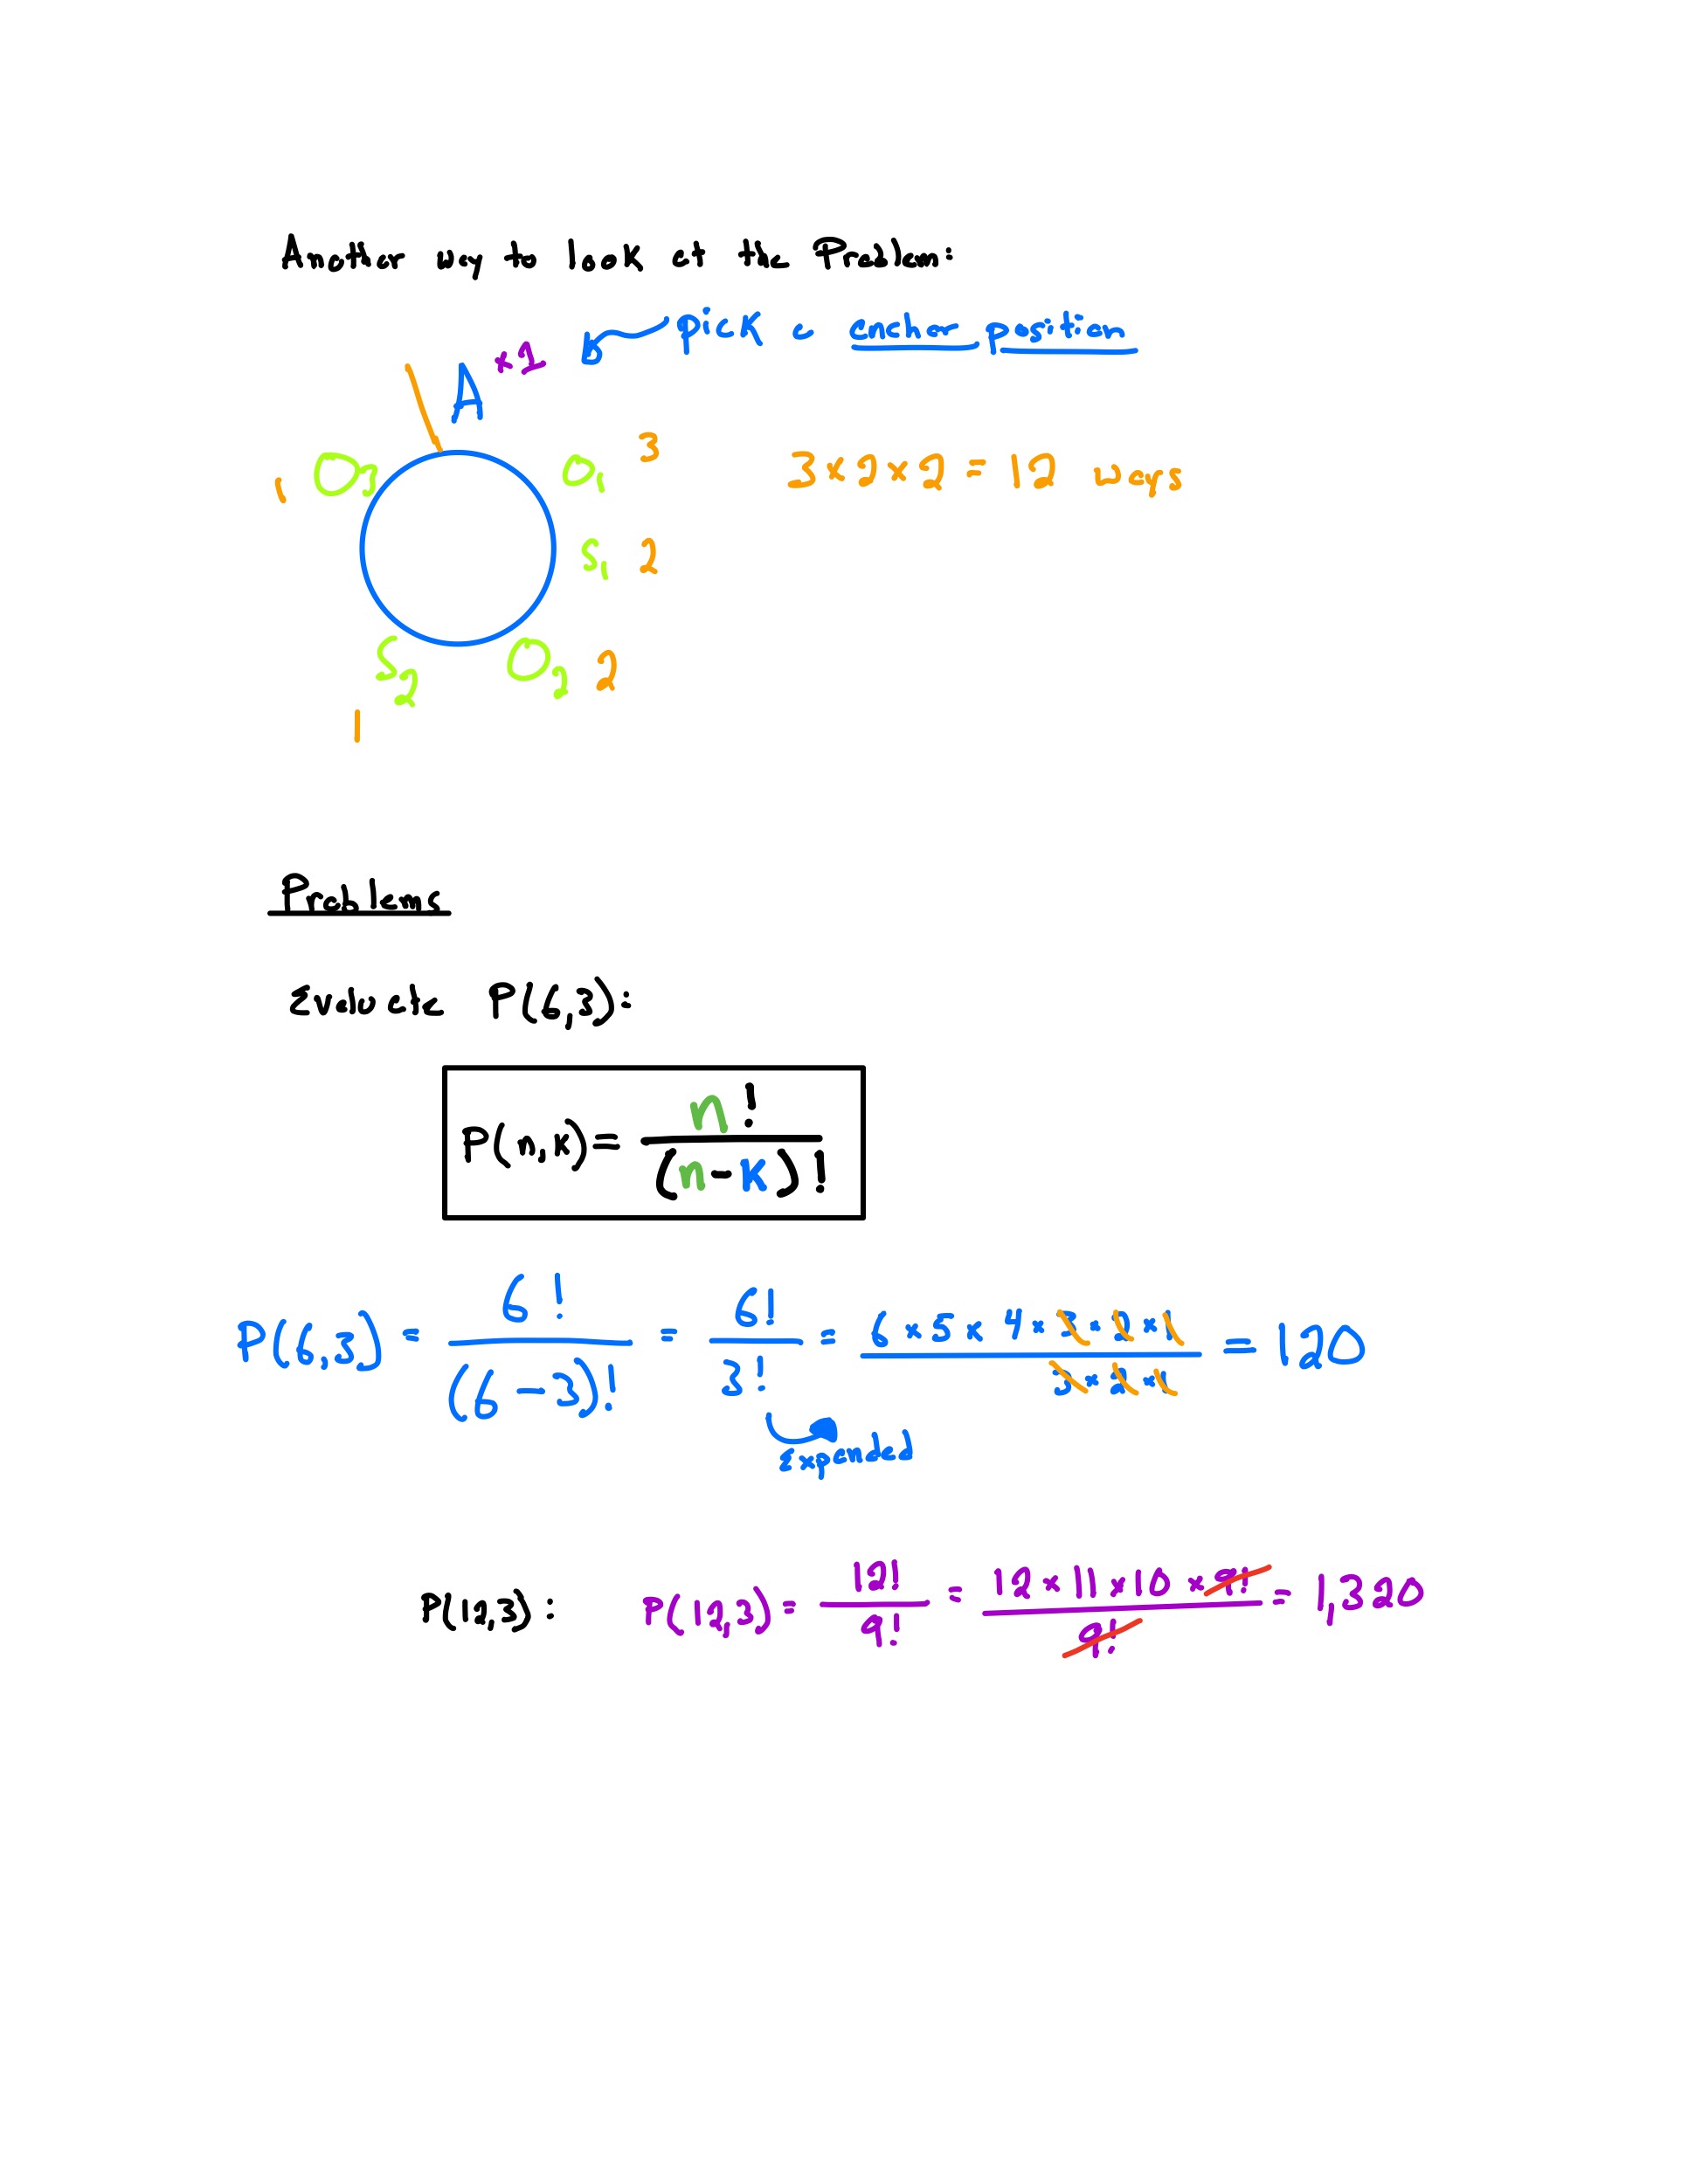 Another way to look at the Problem:
pick a anchor position
A x1
O3 1
O1 3
3 x 2 x 2 = 12 ways
S1 2
S2 1
O2 2
Problems
Evaluate P(6,3):
P(n,k) = n! / (n-k)!
P(6,3) = 6! / (6-3)! = 6! / 3! = 6 x 5 x 4 x 3 x 2 x 1 / 3 x 2 x 1 = 120
Expanded
P(12,3): P(12,3) = 12! / 9! = 12 x 11 x 10 x 9! / 9! = 1,320